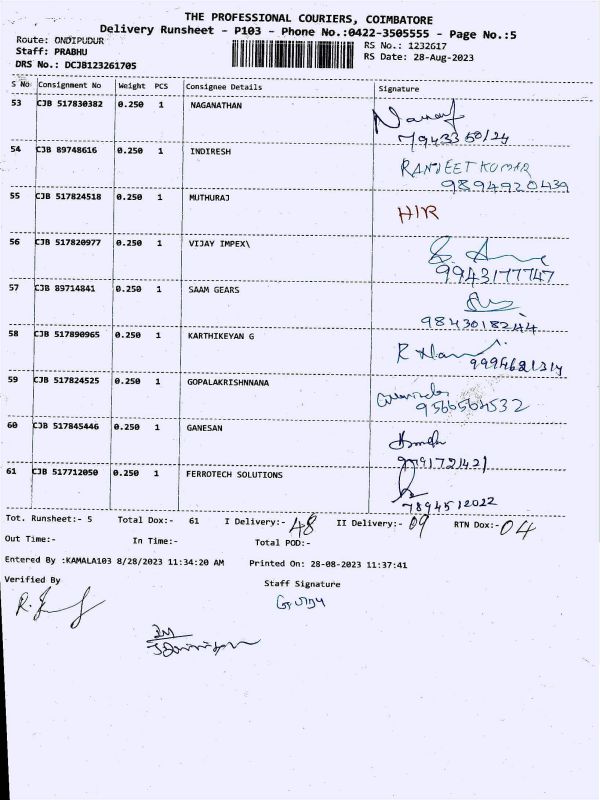 THE PROFESSIONAL COURIERS, COIMBATORE
Delivery Runsheet - P103 - Phone No.:0422-3505555 - Page No.:5
Route: ONDIPUDUR
RS No.: 1232617
Staff: PRABHU
RS Date: 28-Aug-2023
DRS No.: DCJB123261705
S No Consignment No Weight PCS Consignee Details Signature
53 CJB 517830382 0.250 1 NAGANATHAN
54 CJB 89748616 0.250 1 INDIRESH RANJEET KUMAR
9894920439
55 CJB 517824518 0.250 1 MUTHURAJ HIR
56 CJB 517820977 0.250 1 VIJAY IMPEX\
9943177747
57 CJB 89714841 0.250 1 SAAM GEARS
58 CJB 517890965 0.250 1 KARTHIKEYAN G
59 CJB 517824525 0.250 1 GOPALAKRISHNNANA
9566564532
60 CJB 517845446 0.250 1 GANESAN
9791721421
61 CJB 517712050 0.250 1 FERROTECH SOLUTIONS
7894512022
Tot. Runsheet:- 5 Total Dox:- 61 I Delivery:- 48 II Delivery:- 09 RTN Dox:- 04
Out Time:- In Time:- Total POD:-
Entered By :KAMALA103 8/28/2023 11:34:20 AM Printed On: 28-08-2023 11:37:41
Verified By Staff Signature